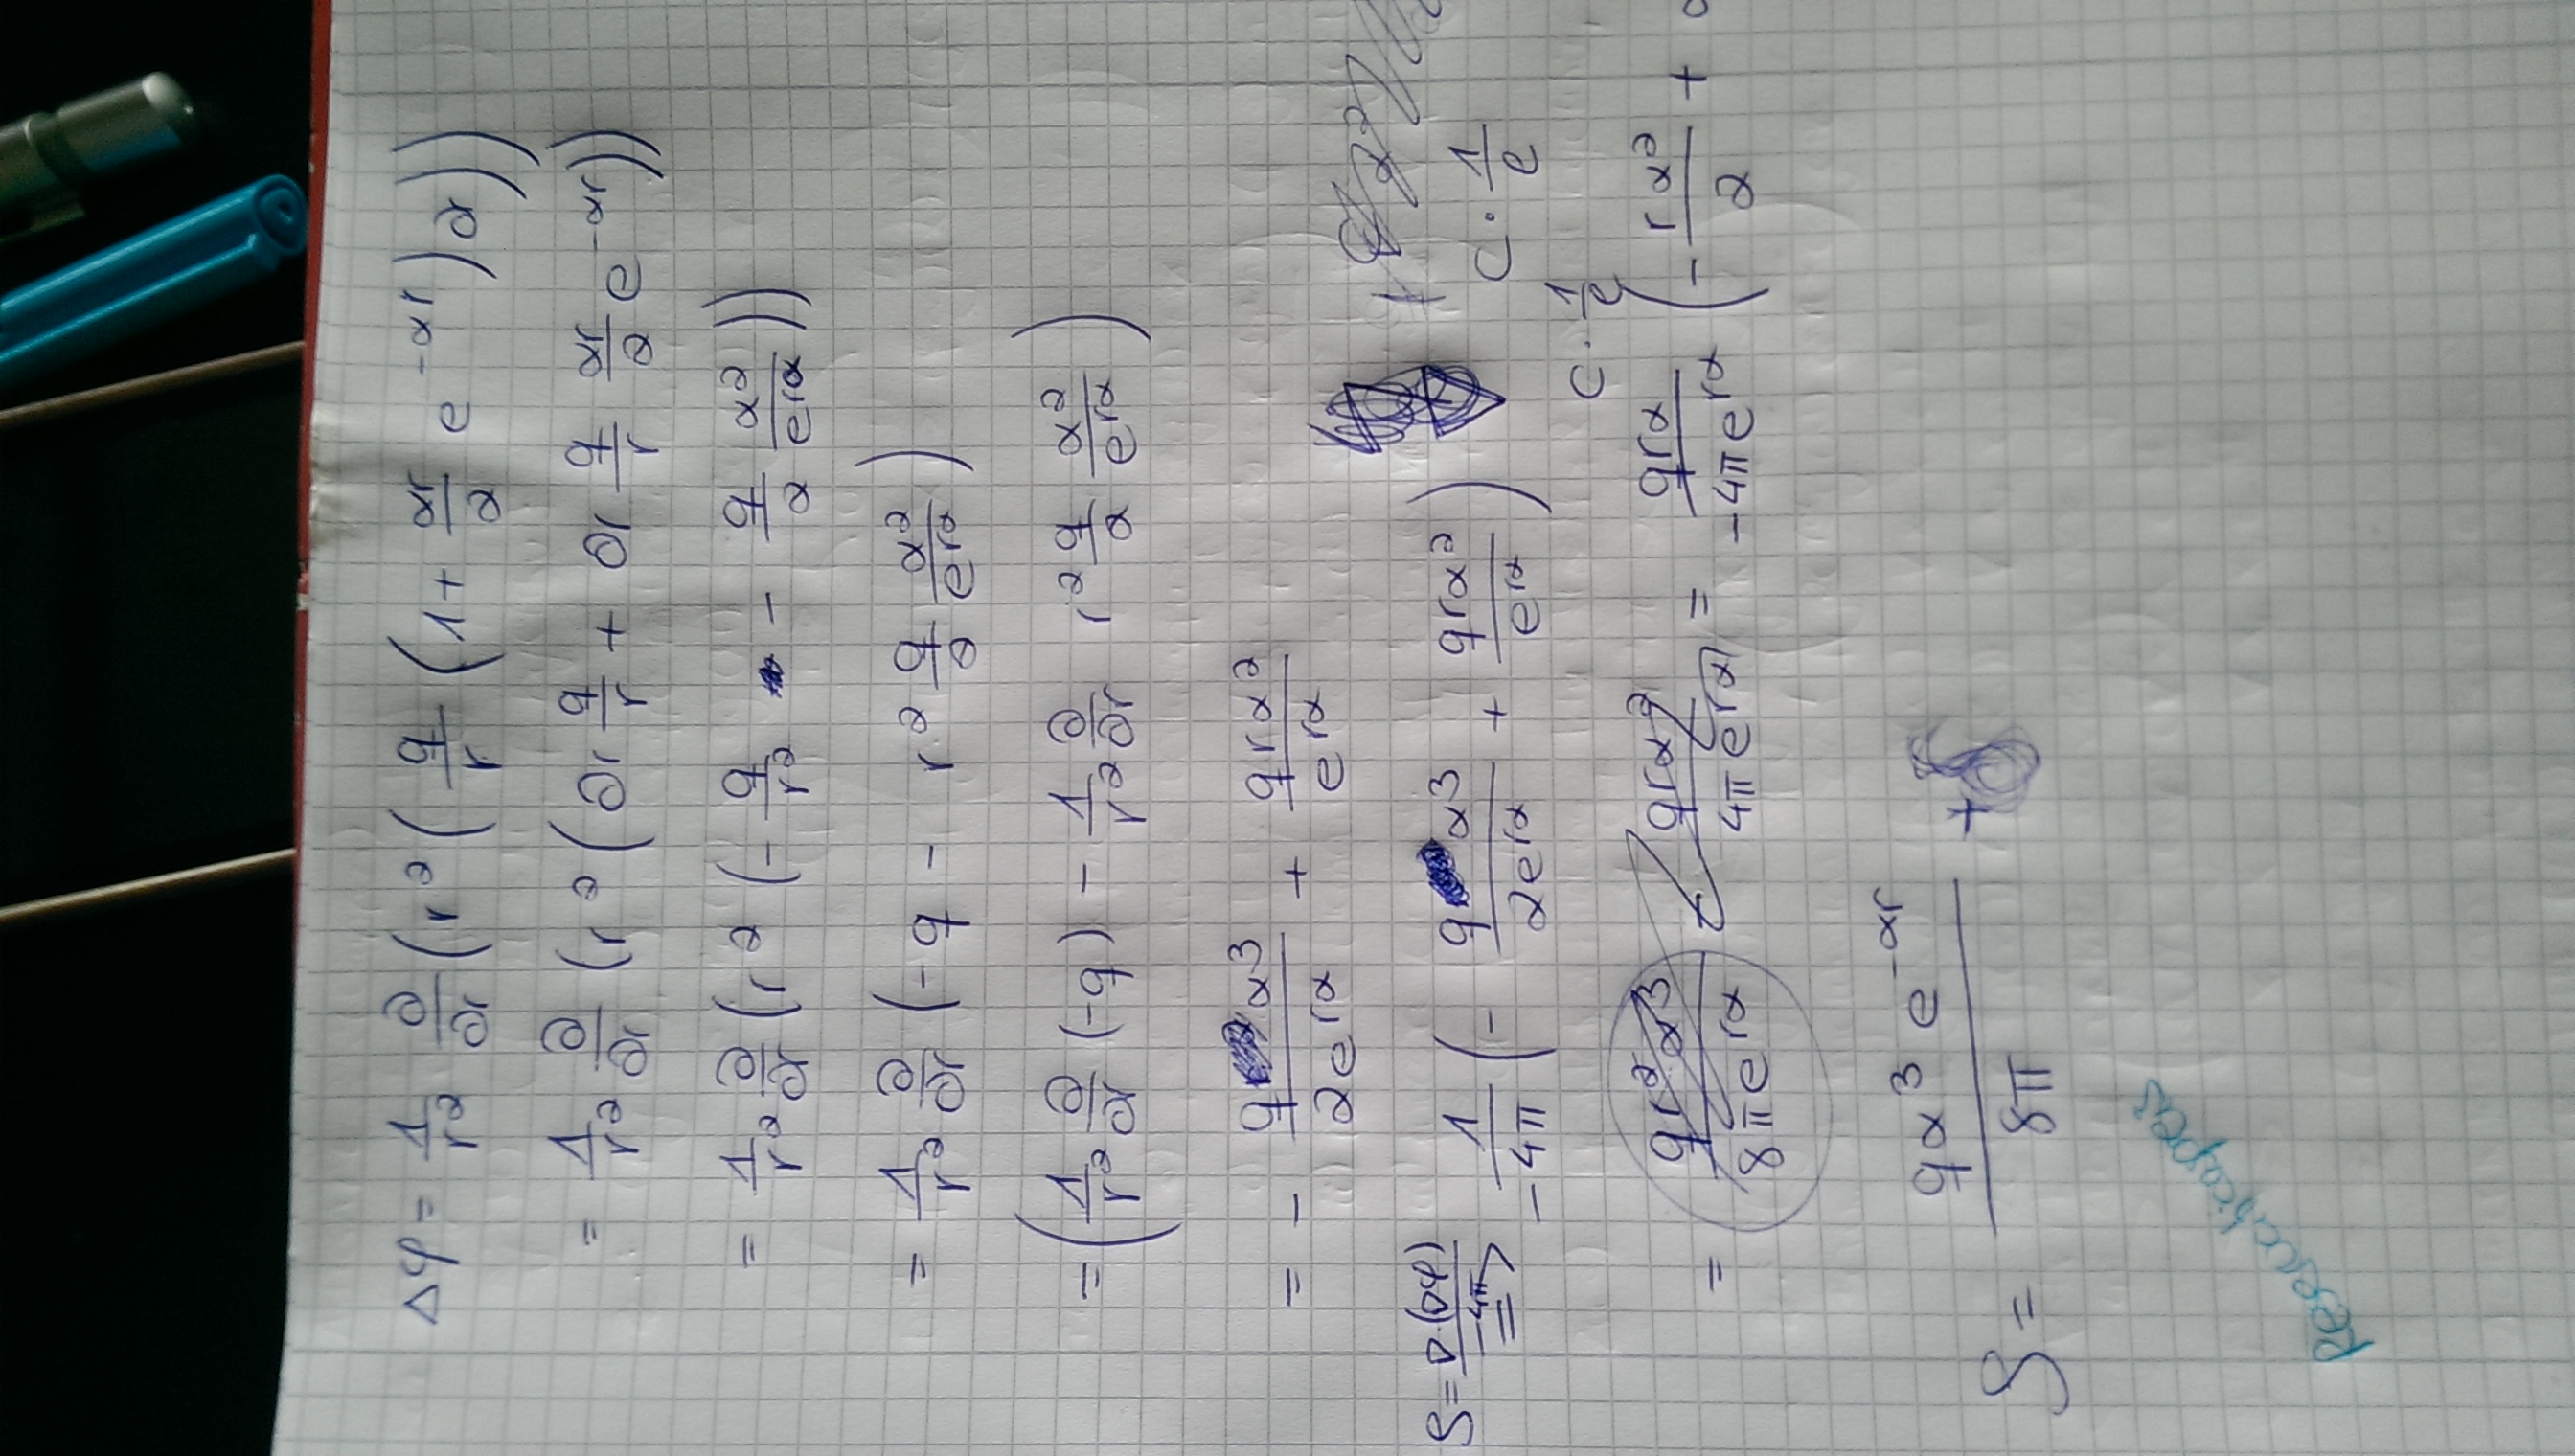 Δφ = 1/r² ∂/∂r (r² (q/r (1 + αr/2 e^-αr) ∂))
= 1/r² ∂/∂r (r² (∂r q/r + ∂r q/r αr/2 e^-αr))
= 1/r² ∂/∂r (r² (- q/r² - q/2 α²/e^rα))
= 1/r² ∂/∂r (-q - r² q/2 α²/e^rα)
= (1/r² ∂/∂r (-q) - 1/r² ∂/∂r r² q/2 α²/e^rα)
= - qα³/2e^rα + qrα²/e^rα
ρ = ∇(∇φ)/-4π => 1/-4π (- qα³/2e^rα + qrα²/e^rα) C · 1/e
= qr²α³/8πe^rα qrα²/4πe^rα = qrα/-4πe^rα (- rα²/2 +
C · 1/e
ρ = qα³ e^-αr / 8π +